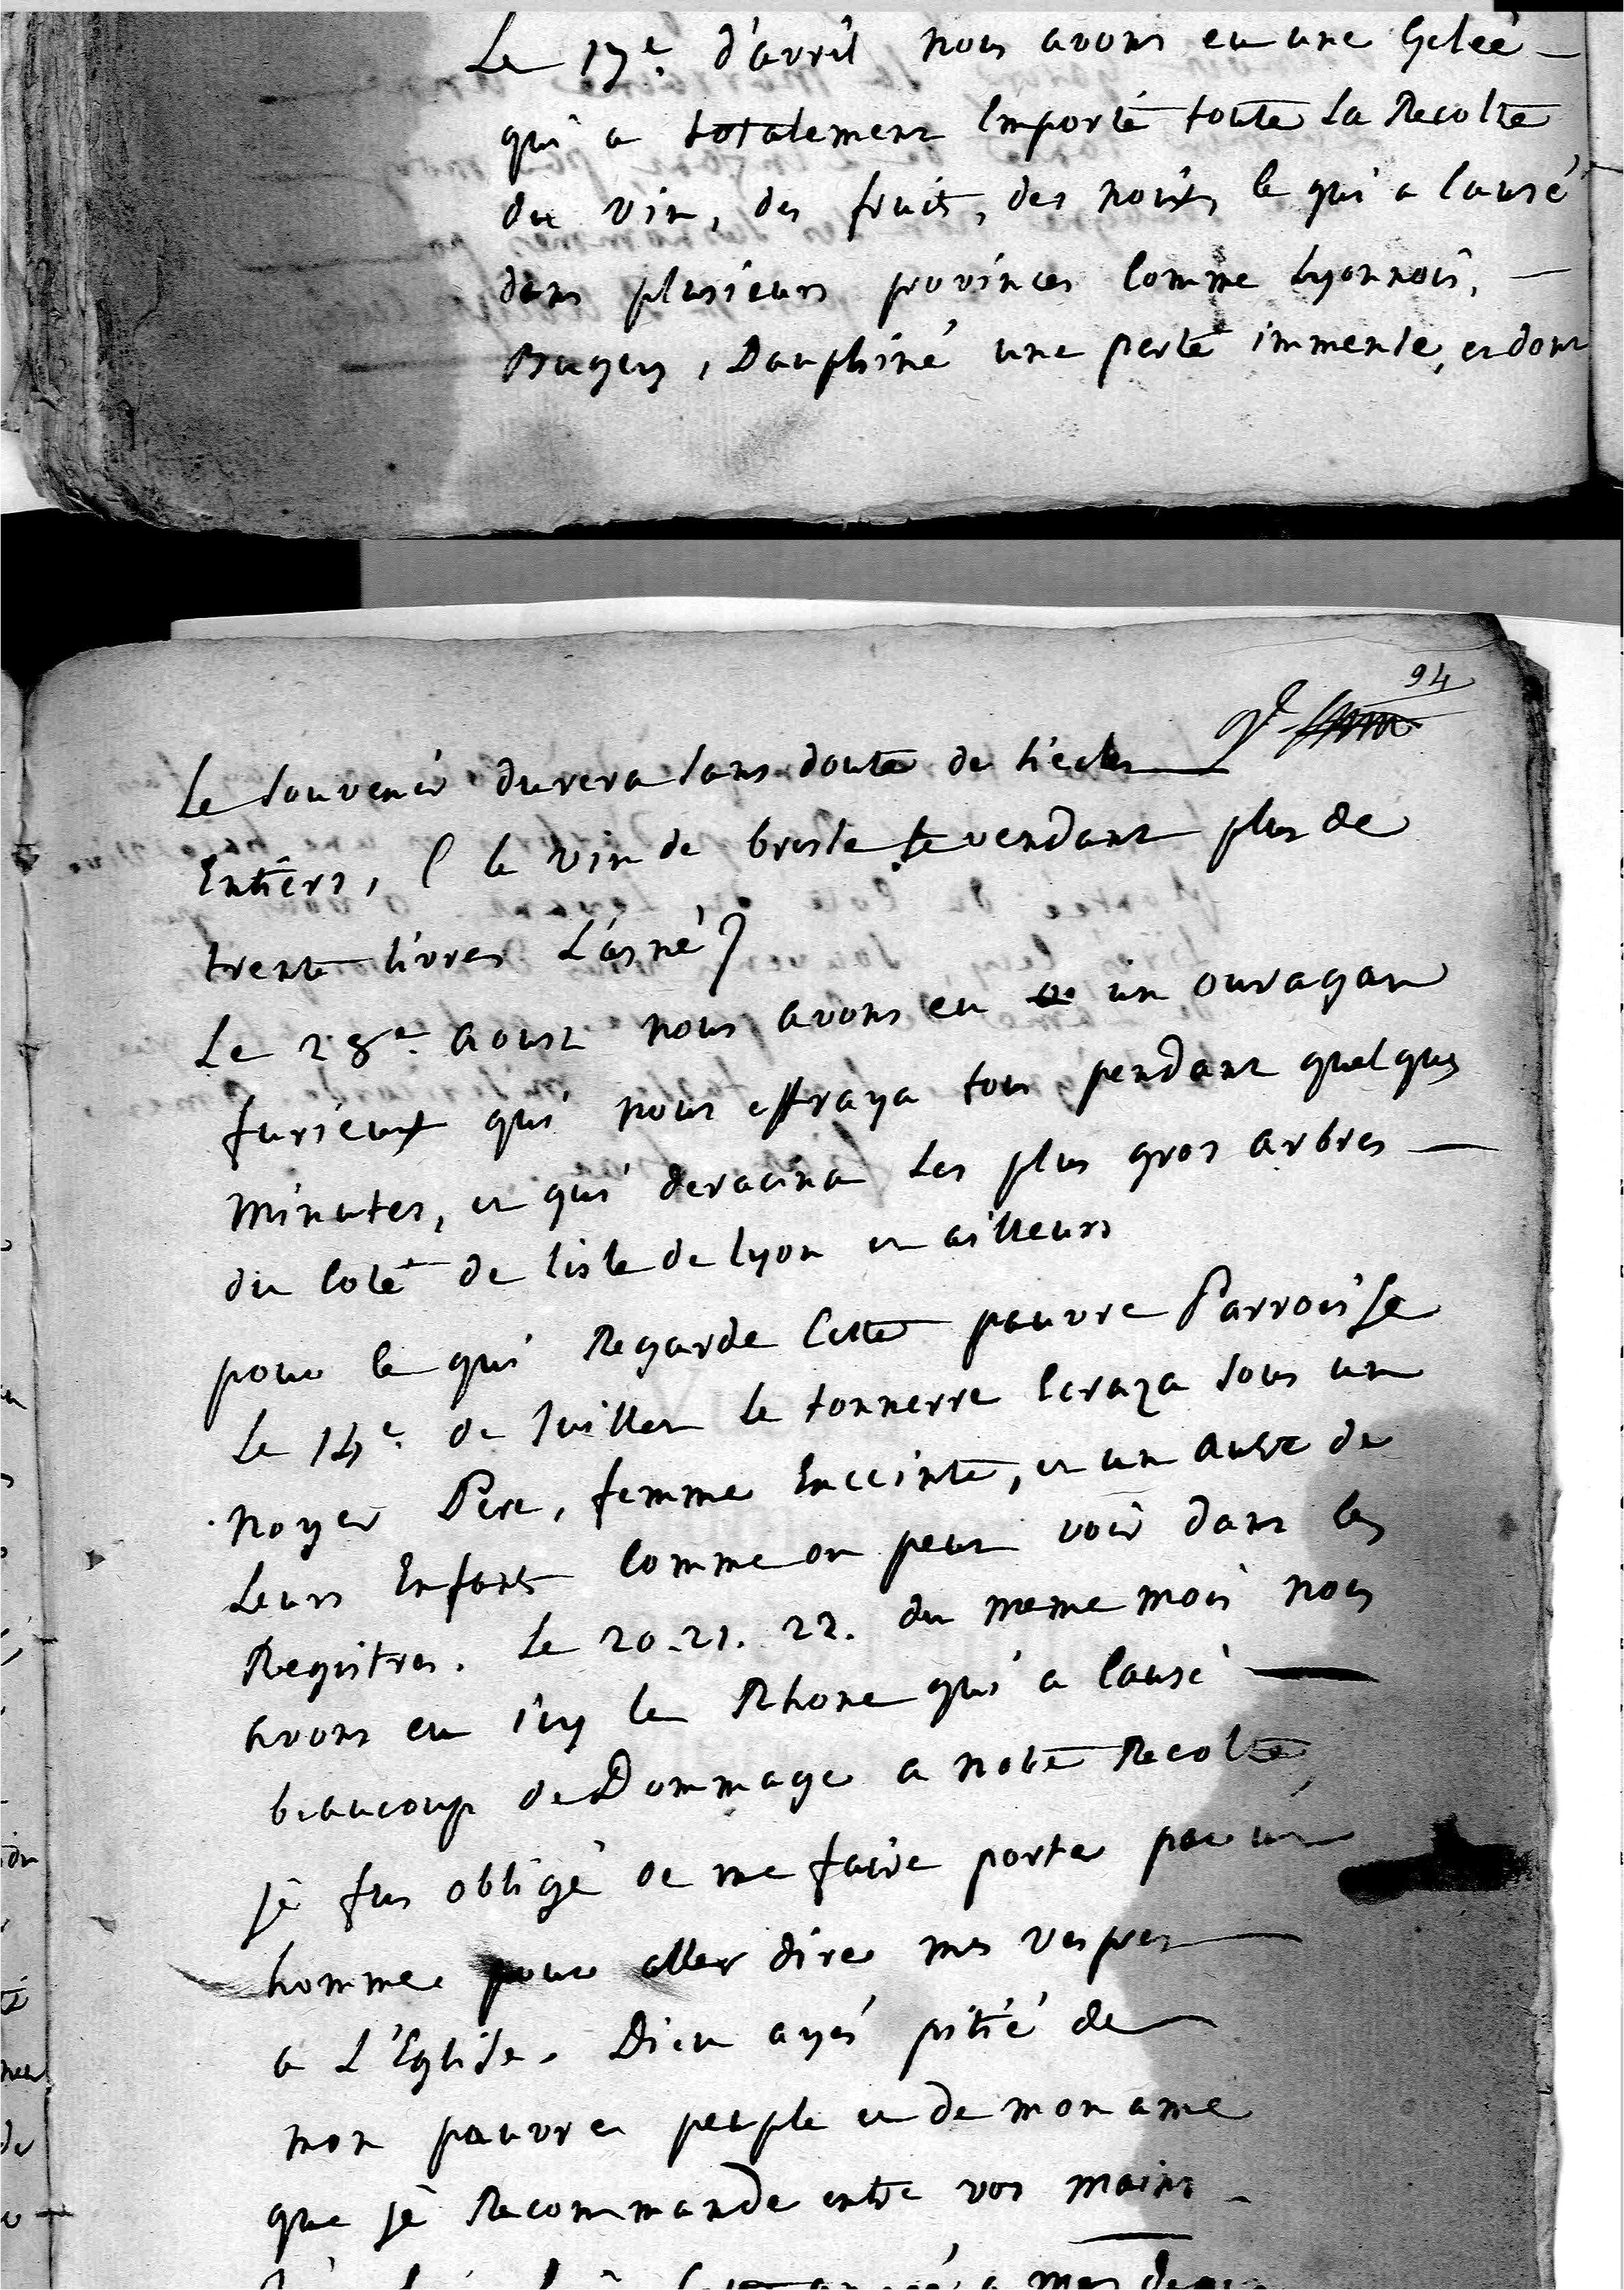 Le 17e. d'avril nous avons eu une Gelée
qui a totalement Emporté toute La Recolte
du vin, des fruits, des noix, ce qui a causé
dans plusieurs provinces comme Lyonnois,
Bugey, Dauphiné une perte immense, et dont
94
Le souvenir durera sans doute de siecles
Entiers, ( le vin de bresse se vendant plus de
trente livres L'asné)
Le 28e. aoust nous avons eu un ouragan
furieux qui nous effraya tous pendant quelques
minutes, et qui deracina Les plus gros arbres
du Coté de l'isle de lyon et ailleurs
pour ce qui Regarde Cette pauvre Parroisse
Le 14e. de Juillet le tonnerre Ecraza sous un
noyer Pere, femme Enceinte, et un autre de
Leurs Enfants Comme on peut voir dans les
Registres. Le 20. 21. 22. du meme mois nous
avons eu icy le Rhone qui a causé
beaucoup de Dommage a notre Recolte
je fus obligé de me faire porter par un
homme pour aller dire mes vespres
a L'Eglise. Dieu ayés pitié de
mon pauvre peuple et de mon ame
que je Recommande entre vos mains